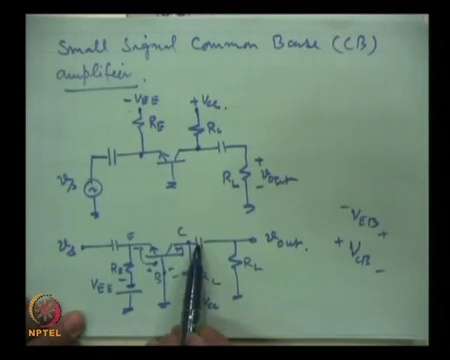 Small Signal Common Base (CB)
amplifier.
-VEE +VCC
RE RL
vs RL + vout -
vs E C vout.
RE B RL
VEE VCC
- VEB +
+ VCB -
NPTEL